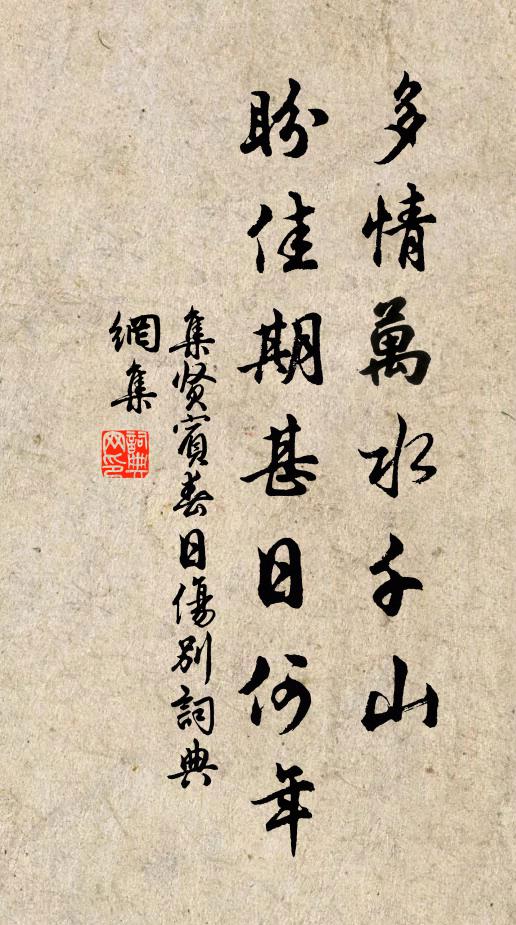 多情萬水千山
盼佳期甚日何年
集贤賓春日傷别詞典
網集
詞典
网印